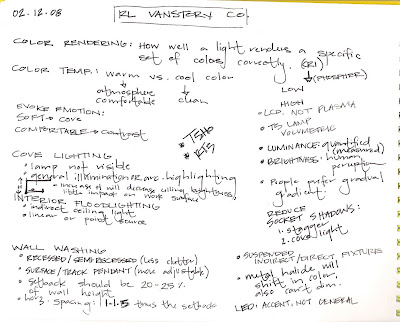 02.12.08
RL VANSTORY CO.
COLOR RENDERING: How well a light renders a specific
set of colors correctly. (CRI)
COLOR TEMP: warm vs. cool color
atmosphere
comfortable
clean
(PHOSPHER)
LOW
HIGH
EVOKE EMOTION:
SOFT → COVE
COMFORTABLE → Contrast
T5HO
• LCD, NOT PLASMA
• T5 LAMP
VOLUMETRIC
• LUMINANCE: quantified
(measured)
• BRIGHTNESS: human
perception
• People prefer gradual
gradient.
COVE LIGHTING
• lamp not visible
• general illumination or arc. highlighting
• increase A will decrease ceiling brightness,
little impact on work surface
INTERIOR FLOODLIGHTING
• indirect ceiling light
• linear or point source
REDUCE
SOCKET SHADOWS:
1. stagger
2. cove light
WALL WASHING
• RECESSED/SEMI-RECESSED (less clutter)
• SURFACE/TRACK PENDANT (more adjustable)
• Setback should be 20-25%
of wall height
• horz. spacing: 1-1.5 times the setback
• SUSPENDED
INDIRECT/DIRECT FIXTURE
• metal halide will
shift in color
also can't dim.
LED: ACCENT, NOT GENERAL